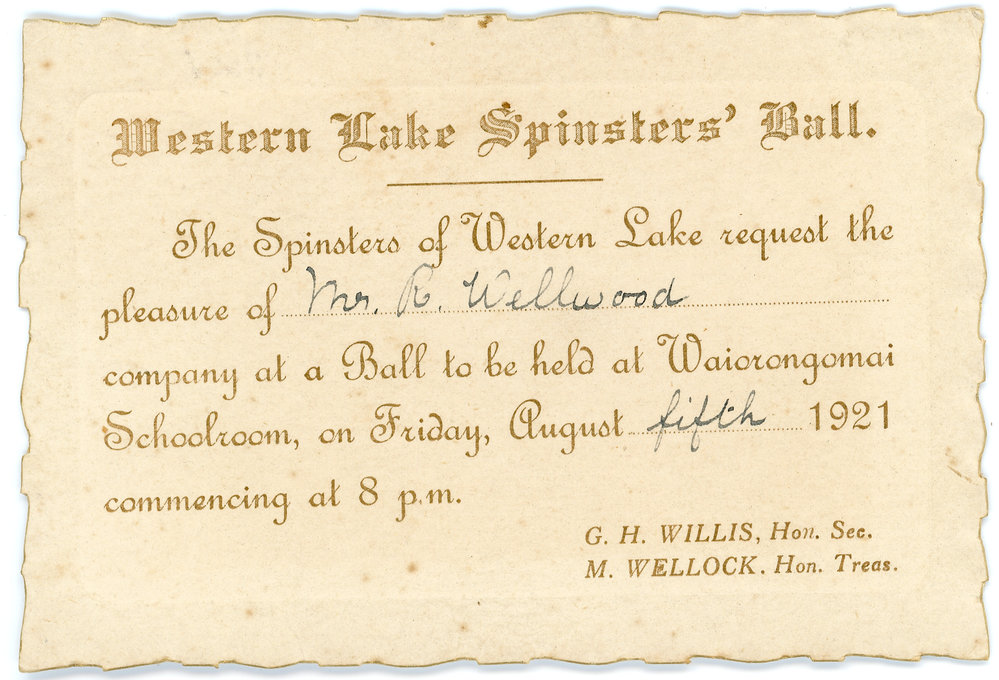 Western Lake Spinsters' Ball.
The Spinsters of Western Lake request the
pleasure of Mr. R. Wellwood
company at a Ball to be held at Waiorongomai
Schoolroom, on Friday, August fifth 1921
commencing at 8 p.m.
G. H. WILLIS, Hon. Sec.
M. WELLOCK. Hon. Treas.